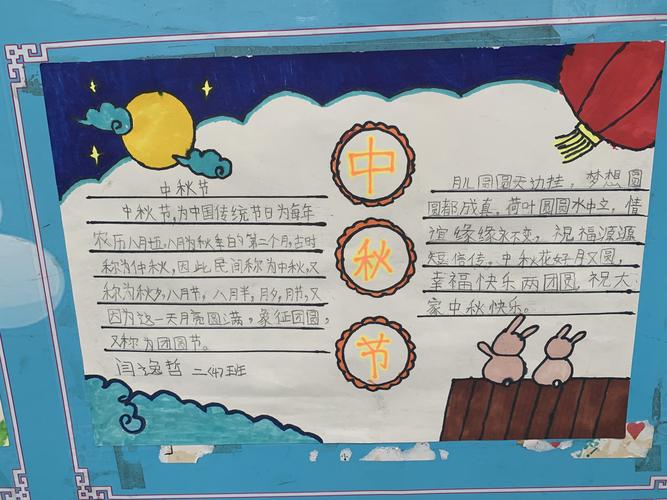 中秋节
中秋节,为中国传统节日为每年
农历八月十五,八月为秋季的第二个月,古时
称为仲秋,因此民间称为中秋,又
称为秋夕,八月节,八月半,月夕,月节,又
因为这一天月亮圆满,象征团圆,
又称为团圆节。
闫逸哲 二(4)班
中
秋
节
月儿圆圆天边挂,梦想圆
圆都成真。荷叶圆圆水中立,情
谊缘缘永不变,祝福源源
短信传。中秋花好月又圆,
幸福快乐两团圆,祝大
家中秋快乐。